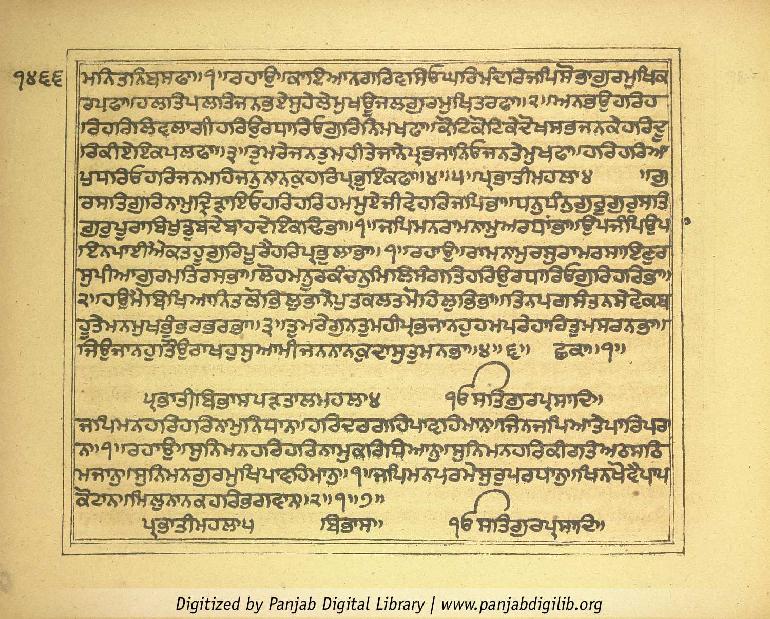 ੧੪੬੬
ਮਾਨਿਤਾਨਿਬਸਫਾ॥੧॥ਰਹਾਉ॥ਕਾਇਆਨਗਰਿਵਸਿਓਘਰਿਮੰਦਰਿਜਪਿਸੋਭਾਗੁਰਮੁਖਿਕ
ਰਪਫਾ॥ਹਲਤਿਪਲਤਿਜਨਭਏਸੁਹੇਲੇਮੁਖਊਜਲਗੁਰਮੁਖਿਤਰਫਾ॥੨॥ਅਨਭਉਹਰਿਹ
ਰਿਹਰਿਲਿਵਲਾਗੀਹਰਿਉਰਧਾਰਿਓਗੁਰਿਨਿਮਖਫਾ॥ਕੋਟਿਕੋਟਿਕੇਦੋਖਸਭਜਨਕੇਹਰਿਦੂ
ਰਿਕੀਏਇਕਪਲਫਾ॥੩॥ਤੁਮਰੇਜਨਤੁਮਹੀਤੇਜਾਨੇਪ੍ਰਭਜਾਨਿਓਜਨਤੇਮੁਖਫਾ॥ਹਰਿਹਰਿਆ
ਪੁਧਰਿਓਹਰਿਜਨਮਹਿਜਨੁਨਾਨਕੁਹਰਿਪ੍ਰਭੁਇਕਫਾ॥੪॥੫॥ਪ੍ਰਭਾਤੀਮਹਲਾ੪ ॥ਗੁ
ਰਸਤਿਗੁਰਿਨਾਮੁਦ੍ਰਿੜਾਇਓਹਰਿਹਰਿਹਮਮੁਏਜੀਵੇਹਰਿਜਪਿਭਾ॥ਧਨੁਧੰਨੁਗੁਰੂਗੁਰੁਸਤਿ
ਗੁਰੁਪੂਰਾਬਿਖੁਡੁਬਦੇਬਾਹਦੇਇਕਢਿਭਾ॥੧॥ਜਪਿਮਨਰਾਮਨਾਮੁਅਰਧਾਂਭਾ॥ਉਪਜੰਪਿਉਪ
ਇਨਪਾਈਐਕਤਹੂਗੁਰਿਪੂਰੈਹਰਿਪ੍ਰਭੁਲਾਭਾ॥੧॥ਰਹਾਉ॥ਰਾਮਨਾਮੁਰਸੁਰਾਮਰਸਾਇਣੁਰ
ਸੁਪੀਆਗੁਰਮਤਿਰਸਭਾ॥ਲੋਹਮਨੂਰਕੰਚਨੁਮਿਲਿਸੰਗਤਿਹਰਿਉਰਧਾਰਿਓਗੁਰਿਹਰਿਭਾ॥
੨॥ਹਉਮੈਬਿਖਿਆਨਿਤਲੋਭਿਲੁਭਾਨੇਪੁਤਕਲਤਮੋਹਿਲੁਭਿਭਾ॥ਤਿਨਪਗਸੰਤਨਸੇਵੇਕਬ
ਹੂਤੇਮਨਮੁਖਭੂੰਭਰਭਰਭਾ॥੩॥ਤੁਮਰੇਗੁਨਤੁਮਹੀਪ੍ਰਭਜਾਨਹੁਹਮਪਰੇਹਾਰਿਤੁਮਸਰਨਭਾ॥
ਜਿਉਜਾਨਹੁਤਿਉਰਾਖਹੁਸੁਆਮੀਜਨਨਾਨਕੁਦਾਸੁਤੁਮਨਭਾ॥੪॥੬॥ ਛਕਾ॥੧॥
ਪ੍ਰਭਾਤੀਬਿਭਾਸਪੜਤਾਲਮਹਲਾ੪ ੴਸਤਿਗੁਰਪ੍ਰਸਾਦਿ॥
ਜਪਿਮਨਹਰਿਹਰਿਨਾਮੁਨਿਧਾਨ॥ਹਰਿਦਰਗਹਿਪਾਵਹਿਮਾਨ॥ਜਿਨਿਜਪਿਆਤੇਪਾਰਿਪਰਾ
ਨ॥੧॥ਰਹਾਉ॥ਸੁਨਿਮਨਹਰਿਹਰਿਨਾਮੁਕਰਿਧਿਆਨੁ॥ਸੁਨਿਮਨਹਰਿਕੀਰਤਿਅਠਸਠਿ
ਮਜਾਨੁ॥ਸੁਨਿਮਨਗੁਰਮੁਖਿਪਾਵਹਿਮਾਨੁ॥੧॥ਜਪਿਮਨਪਰਮੇਸੁਰੁਪਰਧਾਨੁ॥ਖਿਨਖੋਵੈਪਾਪ
ਕੋਟਾਨ॥ਮਿਲੁਨਾਨਕਹਰਿਭਗਵਾਨ॥੨॥੧॥੭॥
ਪ੍ਰਭਾਤੀਮਹਲਾ੫ ਬਿਭਾਸ॥ ੴਸਤਿਗੁਰਪ੍ਰਸਾਦਿ॥
Digitized by Panjab Digital Library | www.panjabdigilib.org